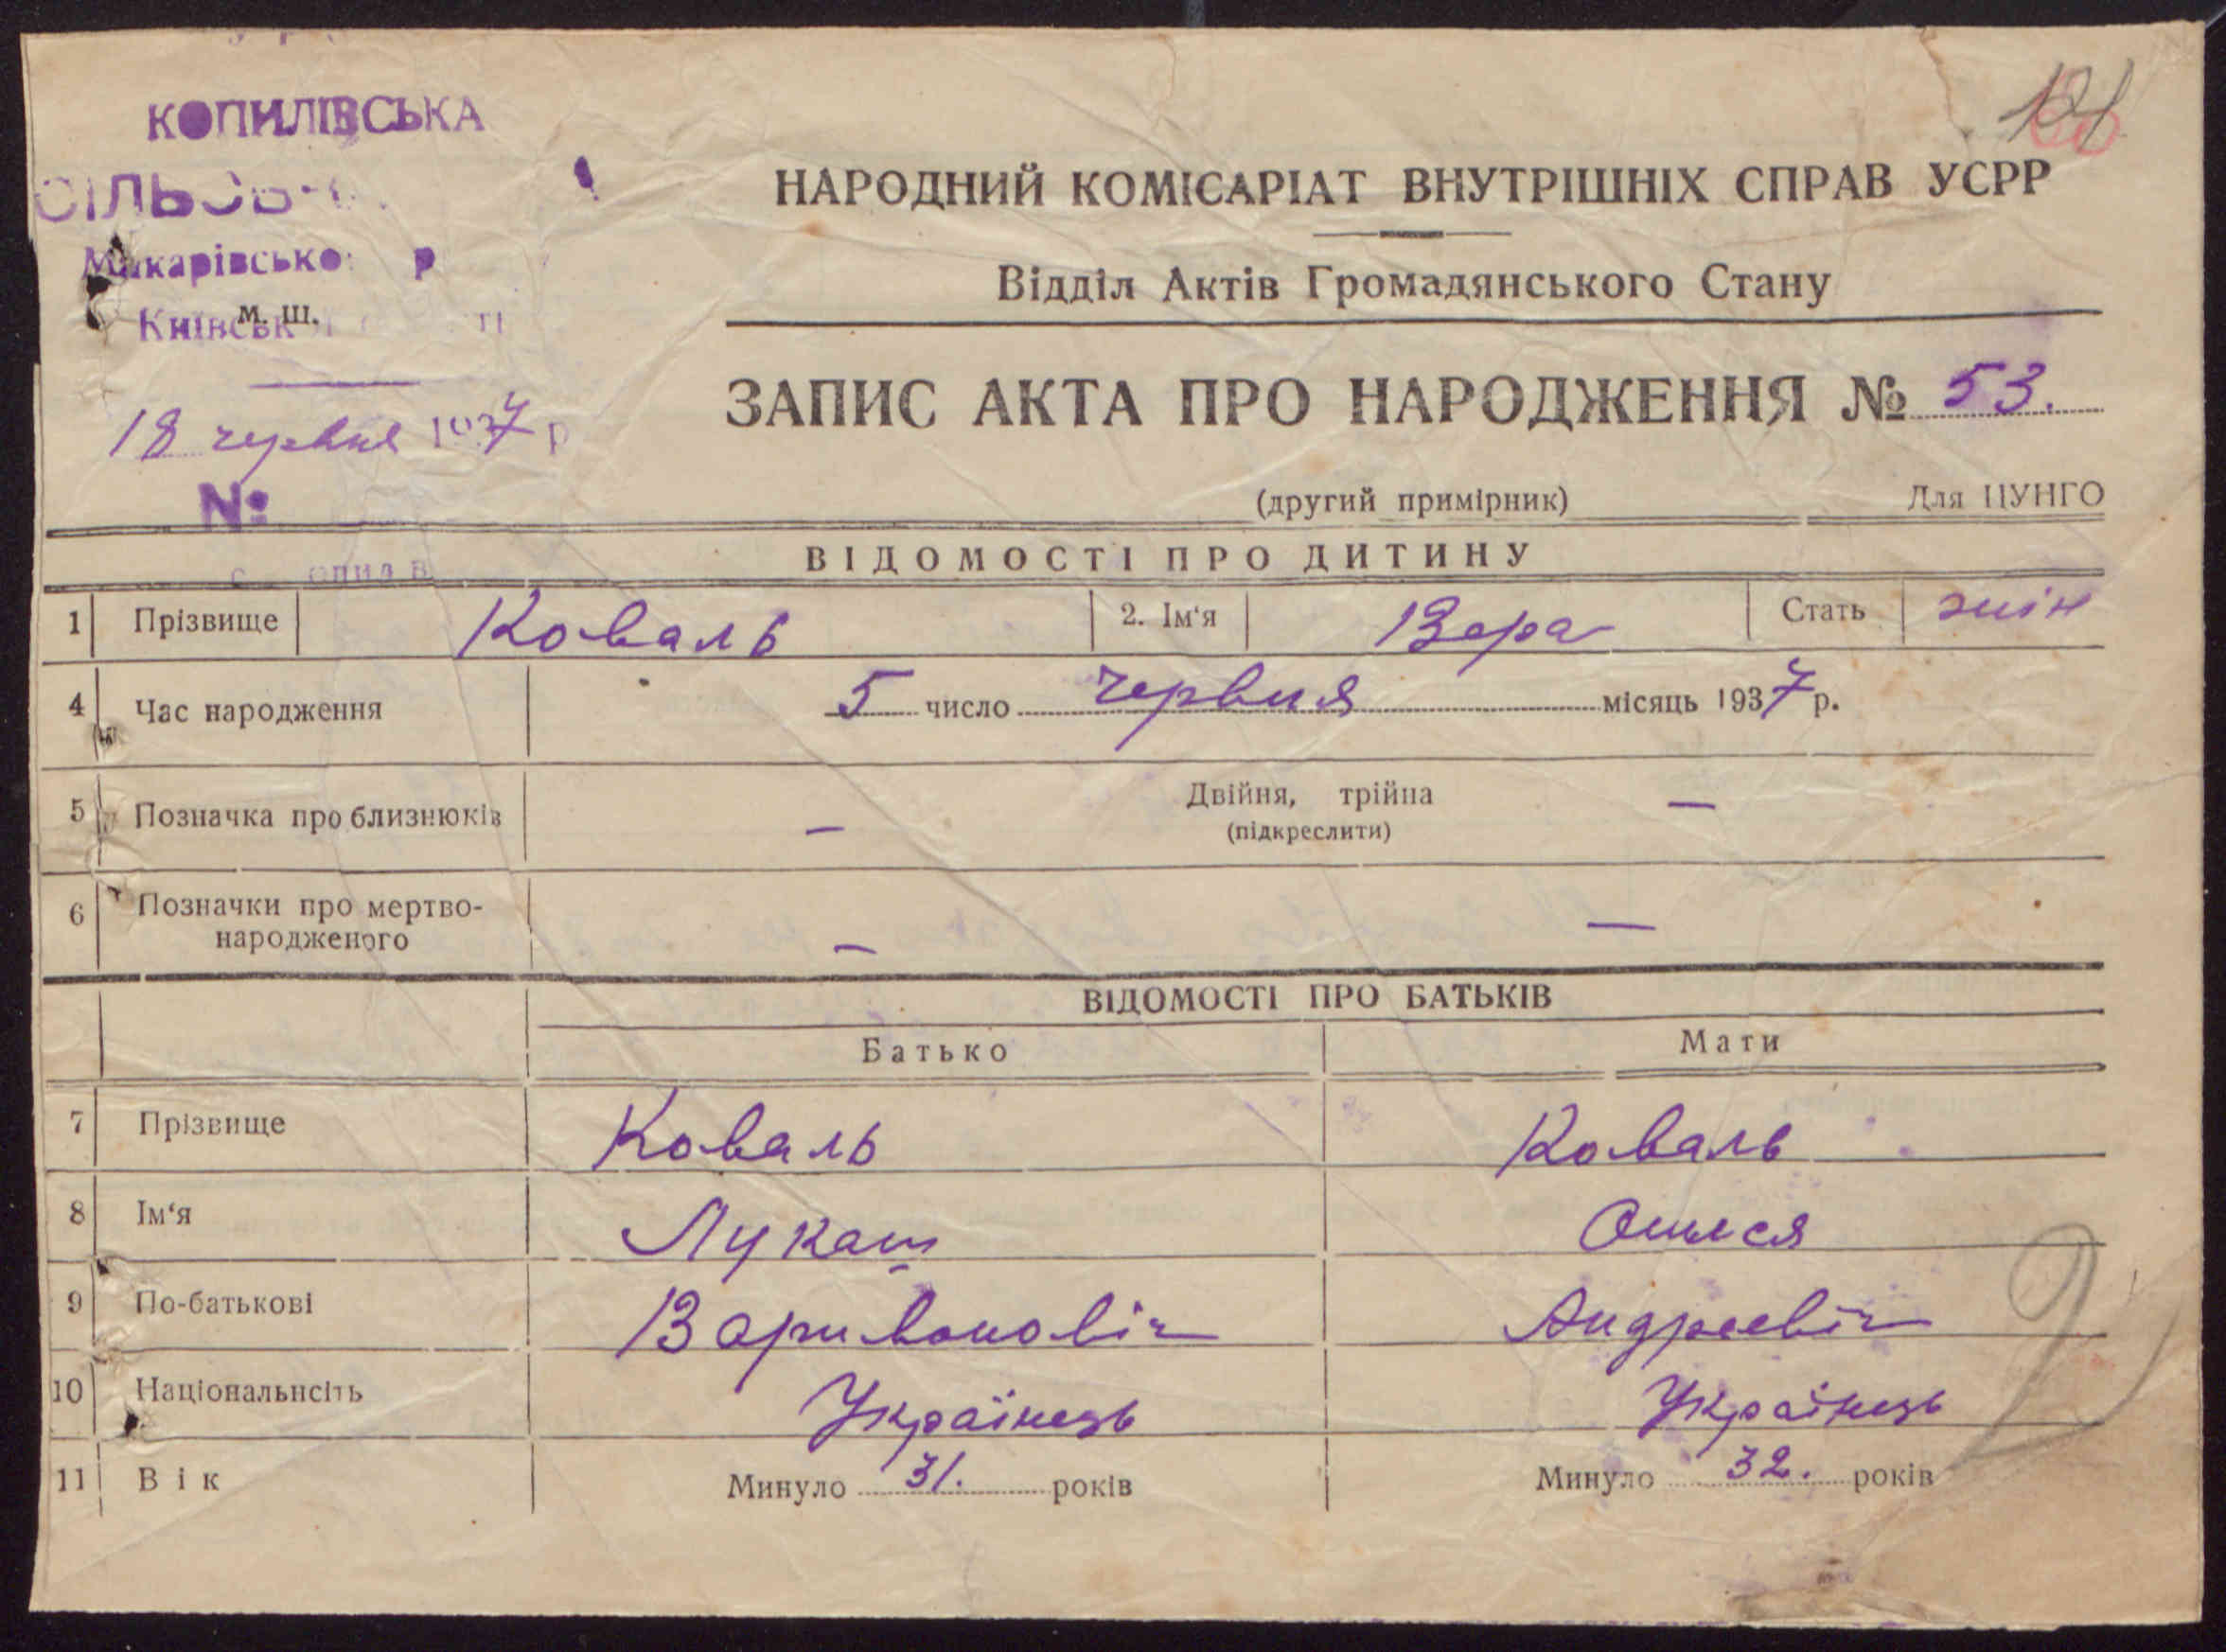 КОПИЛІВСЬКА
Макарівської р
м. ш.
18 червня 1937 р
№
НАРОДНИЙ КОМІСАРІАТ ВНУТРІШНІХ СПРАВ УСРР
Відділ Актів Громадянського Стану
ЗАПИС АКТА ПРО НАРОДЖЕННЯ № 53.
(другий примірник) Для ЦУНГО
ВІДОМОСТІ ПРО ДИТИНУ
1 Прізвище Коваль 2. Ім‘я Вера Стать жін
4 Час народження 5 число червня місяць 1937 р.
5 Позначка про близнюків — Двійня, трійна —
(підкреслити)
6 Позначки про мертво-
народженого — —
ВІДОМОСТІ ПРО БАТЬКІВ
Батько Мати
7 Прізвище Коваль Коваль
8 Ім‘я Лукаш
9 По-батькові Варивоновіч Андреевіч
10 Національнсіть Українець Українець
11 Вік Минуло 31. років Минуло 32. років